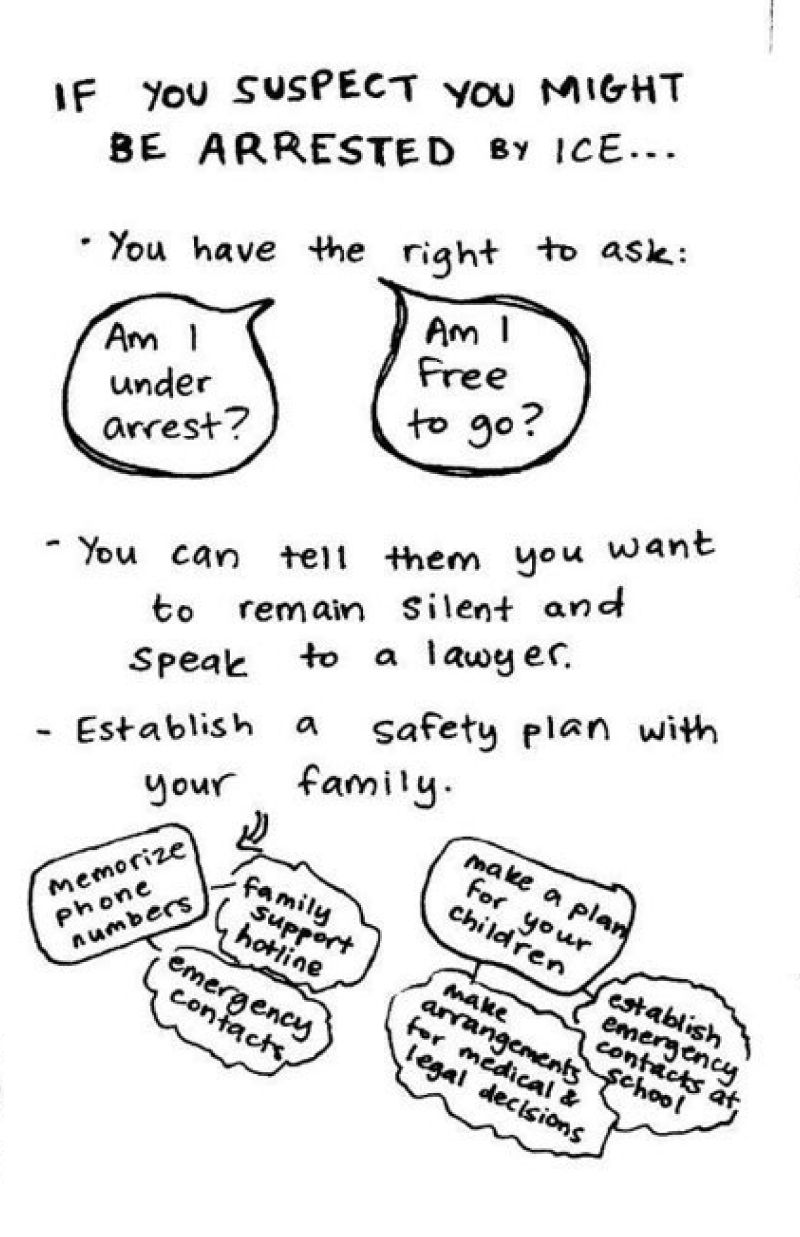 IF YOU SUSPECT YOU MIGHT
BE ARRESTED BY ICE...
· You have the right to ask:
Am I
under
arrest?
Am I
Free
to go?
- You can tell them you want
to remain silent and
speak to a lawyer.
- Establish a safety plan with
your family.
memorize
phone
numbers
family
support
hotline
emergency
contacts
make a plan
for your
children
make
arrangements
for medical &
legal decisions
establish
emergency
contacts at
school